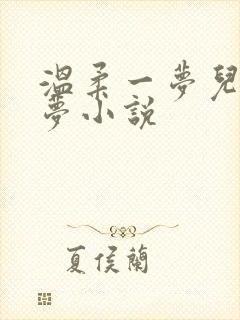 溫柔一夢兒
夢小說
夏侯蘭